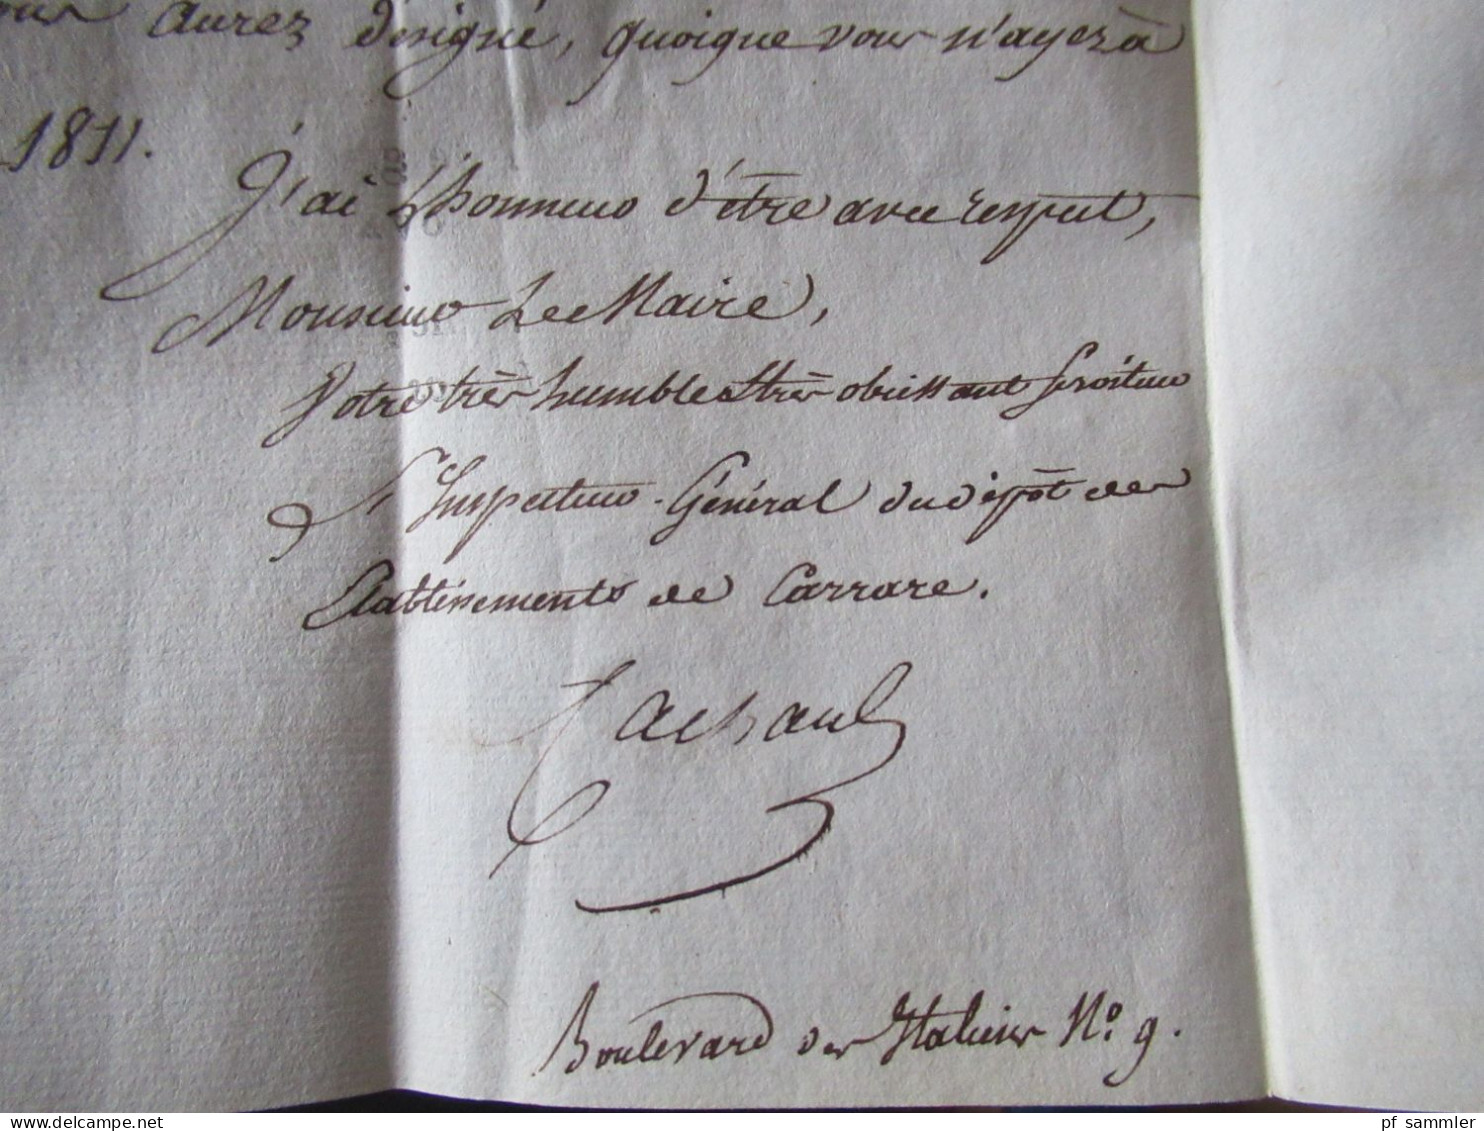 aurez désigné, quoique vous n'ayez à
1811.
J'ai l'honneur d'être avec respect,
Monsieur Le Maire,
Votre très humble et très obéissant Serviteur
L'Inspecteur-Général du dépôt des
Etablissements de Carrare.
Tachault
Boulevard des Italiens N.o 9.
pf sammler